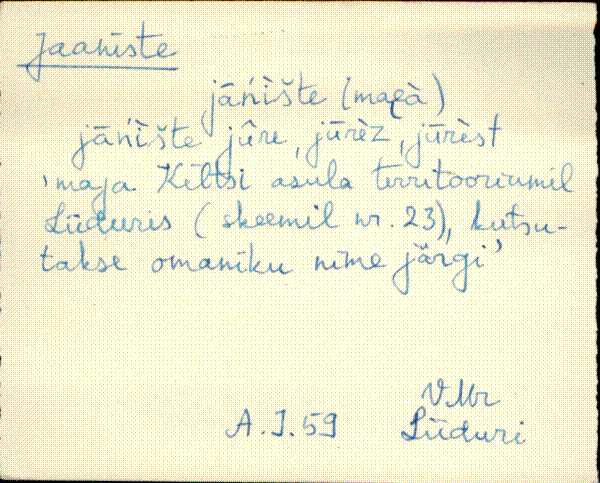 Jaaniste
jāńìšte (maɛà)
jāńìšte jūre, jūrèz, jūrèst
'maja Kiltsi asula territooriumil
Lüduris (skeemil nr. 23), kutsu-
takse omaniku nime järgi'
V.Mr
A.J.59 Lüduri